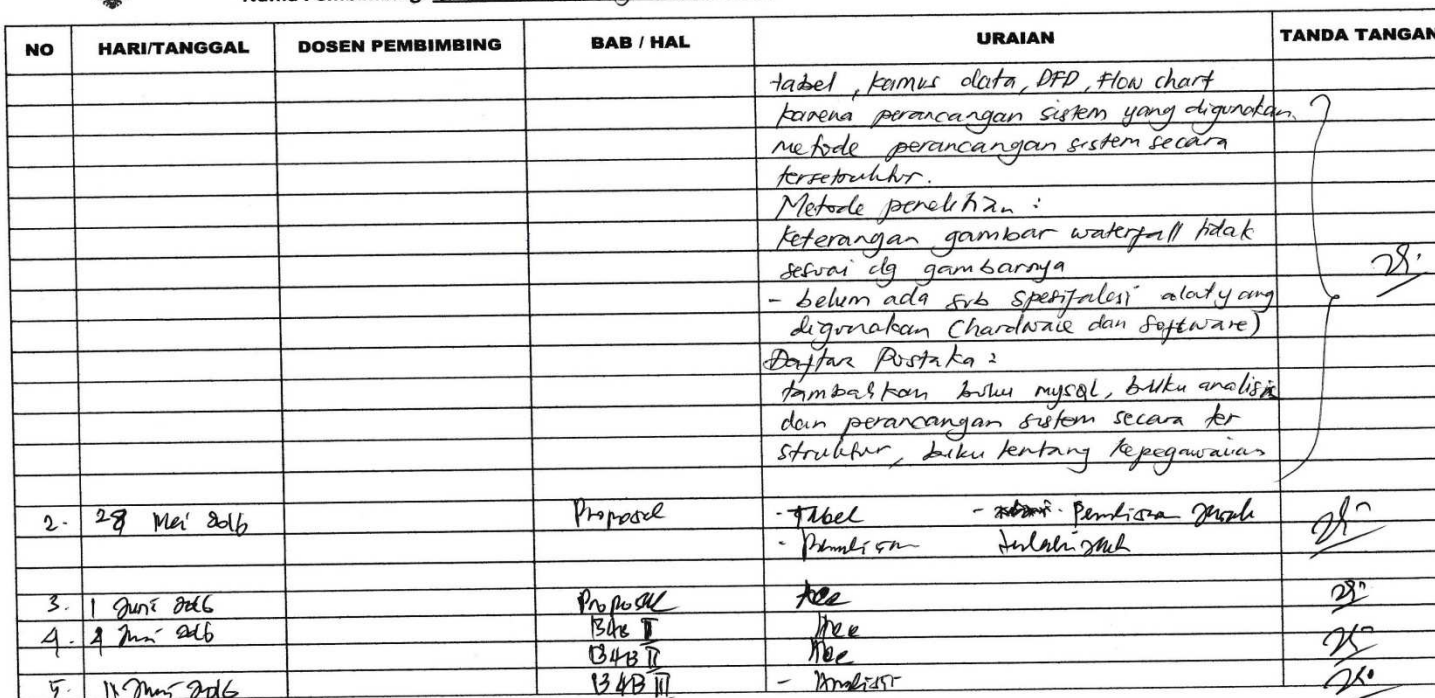 NO HARI/TANGGAL DOSEN PEMBIMBING BAB / HAL URAIAN TANDA TANGAN
tabel, kamus data, DFD, Flow chart
karena perancangan sistem yang digunakan
metode perancangan sistem secara
Metode penelitian :
Keterangan gambar waterfall tidak
sesuai dg gambarnya
- belum ada sub spesifikasi alat yang
digunakan (hardware dan software)
Daftar Pustaka :
tambahkan buku mysql, buku analisis
dan perancangan sistem secara ter
struktur, buku tentang kepegawaian
2. Mei 2016 Proposal - Tabel -
- Penulisan
3. 1 Juni 2016 Proposal Acc
4. Juni 2016 BAB I Acc
BAB II Acc
5. Juni 2016 BAB III - Analisis